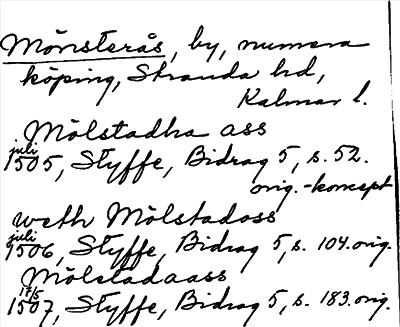 Mönsterås, by, numera
köping, Stranda hd,
Kalmar l.
Mölstadha ass
juli
1505, Styffe, Bidrag 5, s. 52.
orig.-koncept
weth Mölstadoss
juli
1506, Styffe, Bidrag 5, s. 104. orig.
Mölstadaass
17/5
1507, Styffe, Bidrag 5, s. 183. orig.